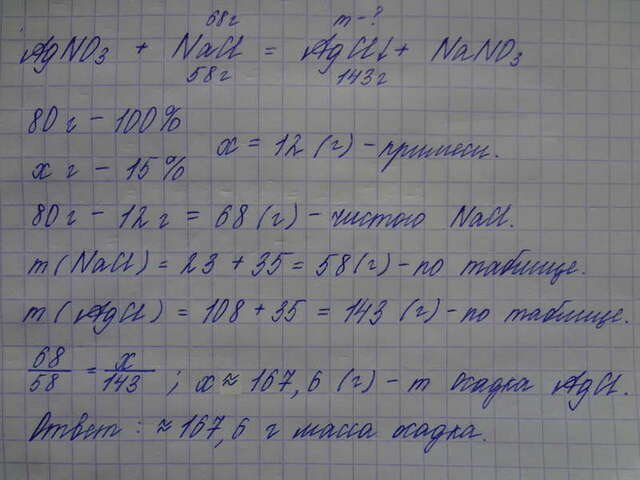 68г m-?
AgNO₃ + NaCl = AgCl↓ + NaNO₃
58г 143г
80 г - 100%
x г - 15%
x = 12 (г) - примеси.
80г - 12 г = 68 (г) - чистого NaCl.
m (NaCl) = 23 + 35 = 58 (г) - по таблице.
m (AgCl) = 108 + 35 = 143 (г) - по таблице.
68/58 = x/143 ; x ≈ 167,6 (г) - m осадка AgCl.
Ответ : ≈ 167,6 г масса осадка.